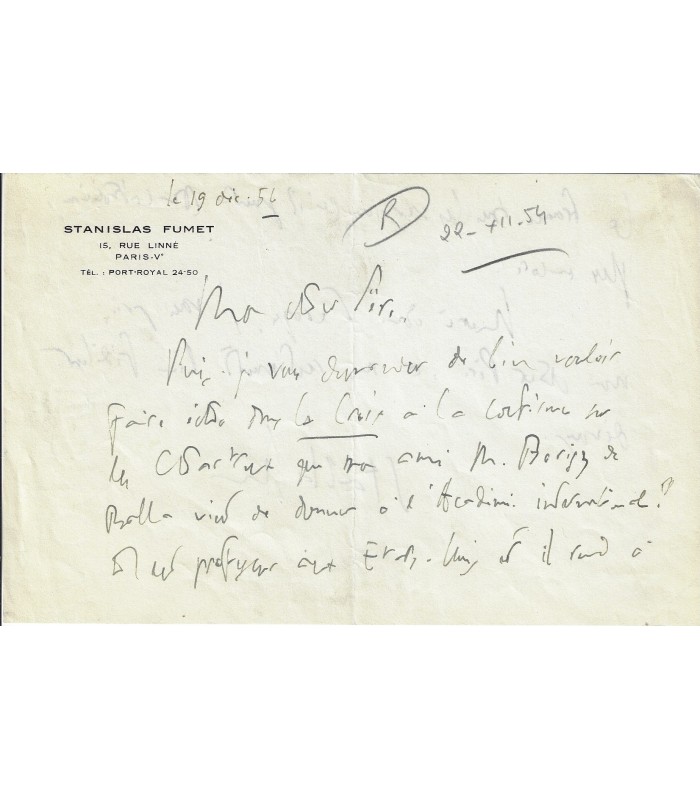 le 19 déc. 54
R
22-XII-54
STANISLAS FUMET
15, RUE LINNÉ
PARIS-Vᵉ
TÉL. : PORT-ROYAL 24-50
Mon cher Père,
Puis-je vous demander de bien vouloir
faire écho dans La Croix à la conférence sur
les Chartreux que mon ami M. de
vient de donner à l'Académie internationale?
Il est professeur aux Etats-Unis et il rend à